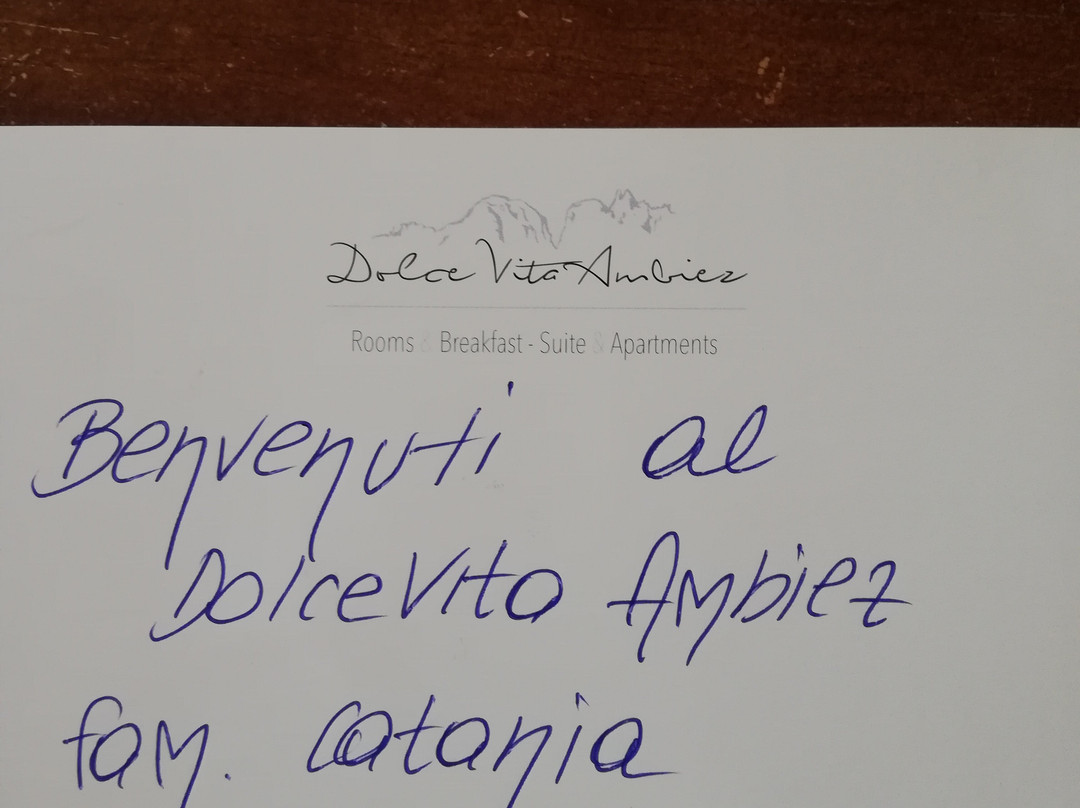 Dolce Vita Ambiez
Rooms & Breakfast - Suite & Apartments
Benvenuti al
DolceVita Ambiez
fam. Catania